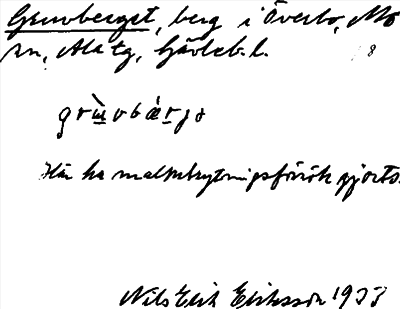 Gruvberget, berg i Överbo, Mo
sn, Ala tg, Gävleb. l.
8
grùvbärjə
Här ha malmbrytningsförsök gjorts.
Nils Erik Eriksson 1933